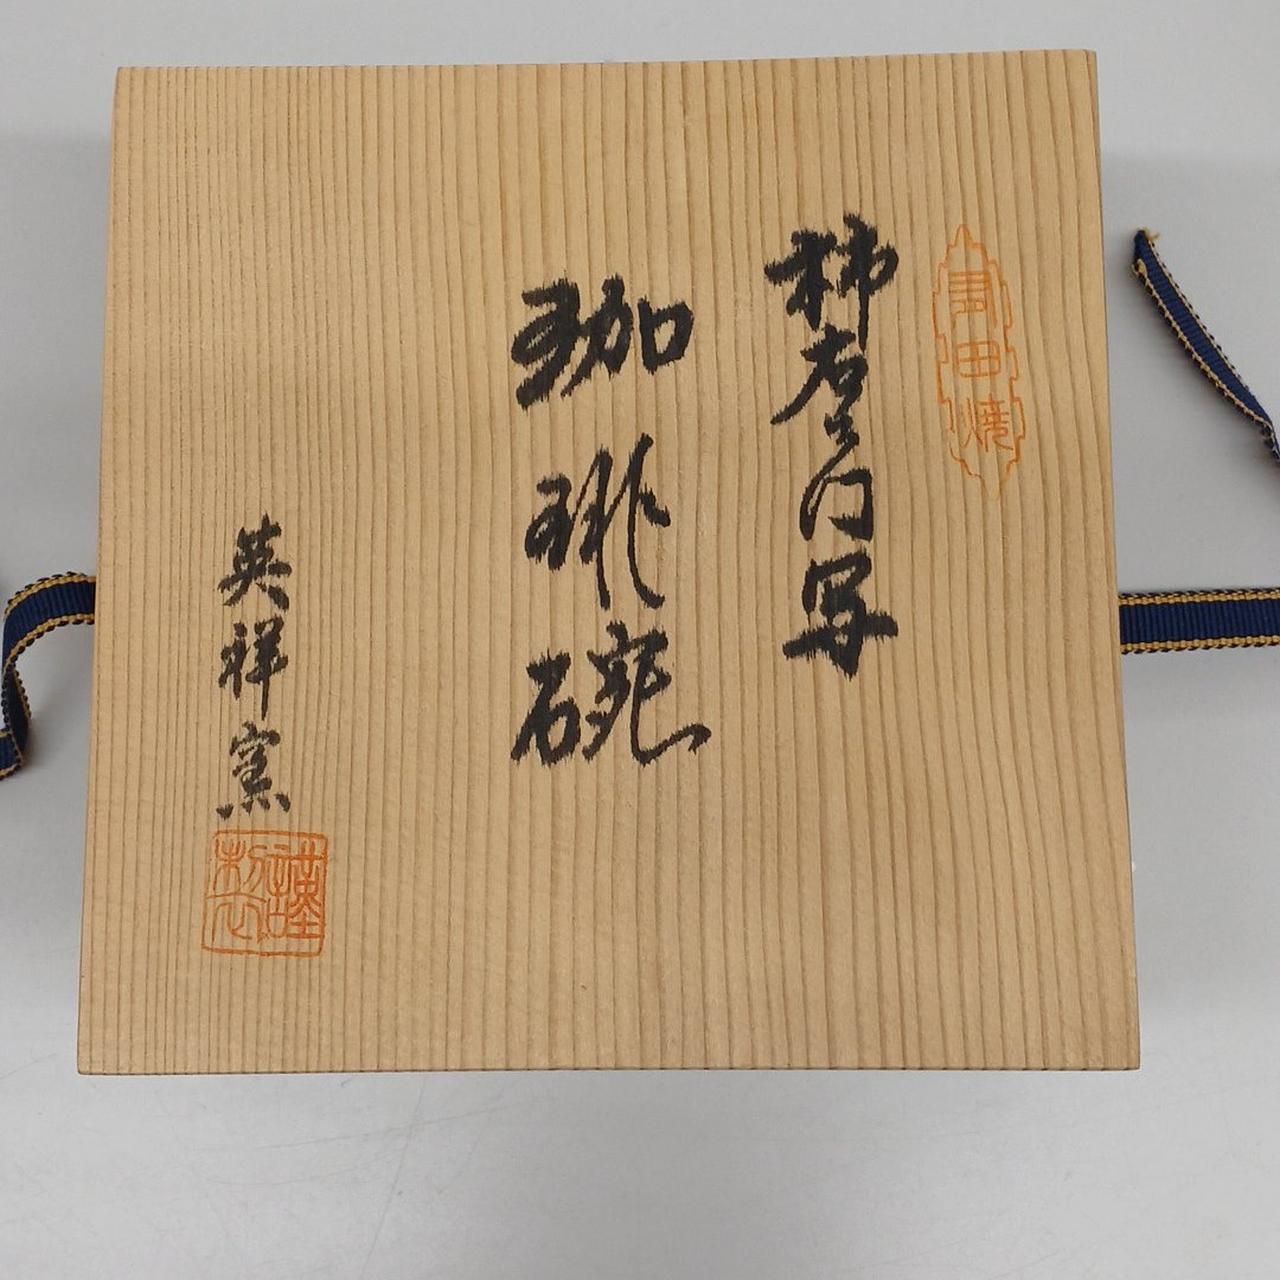 有田焼
柿右ヱ門写
珈琲碗
英祥窯
謹製